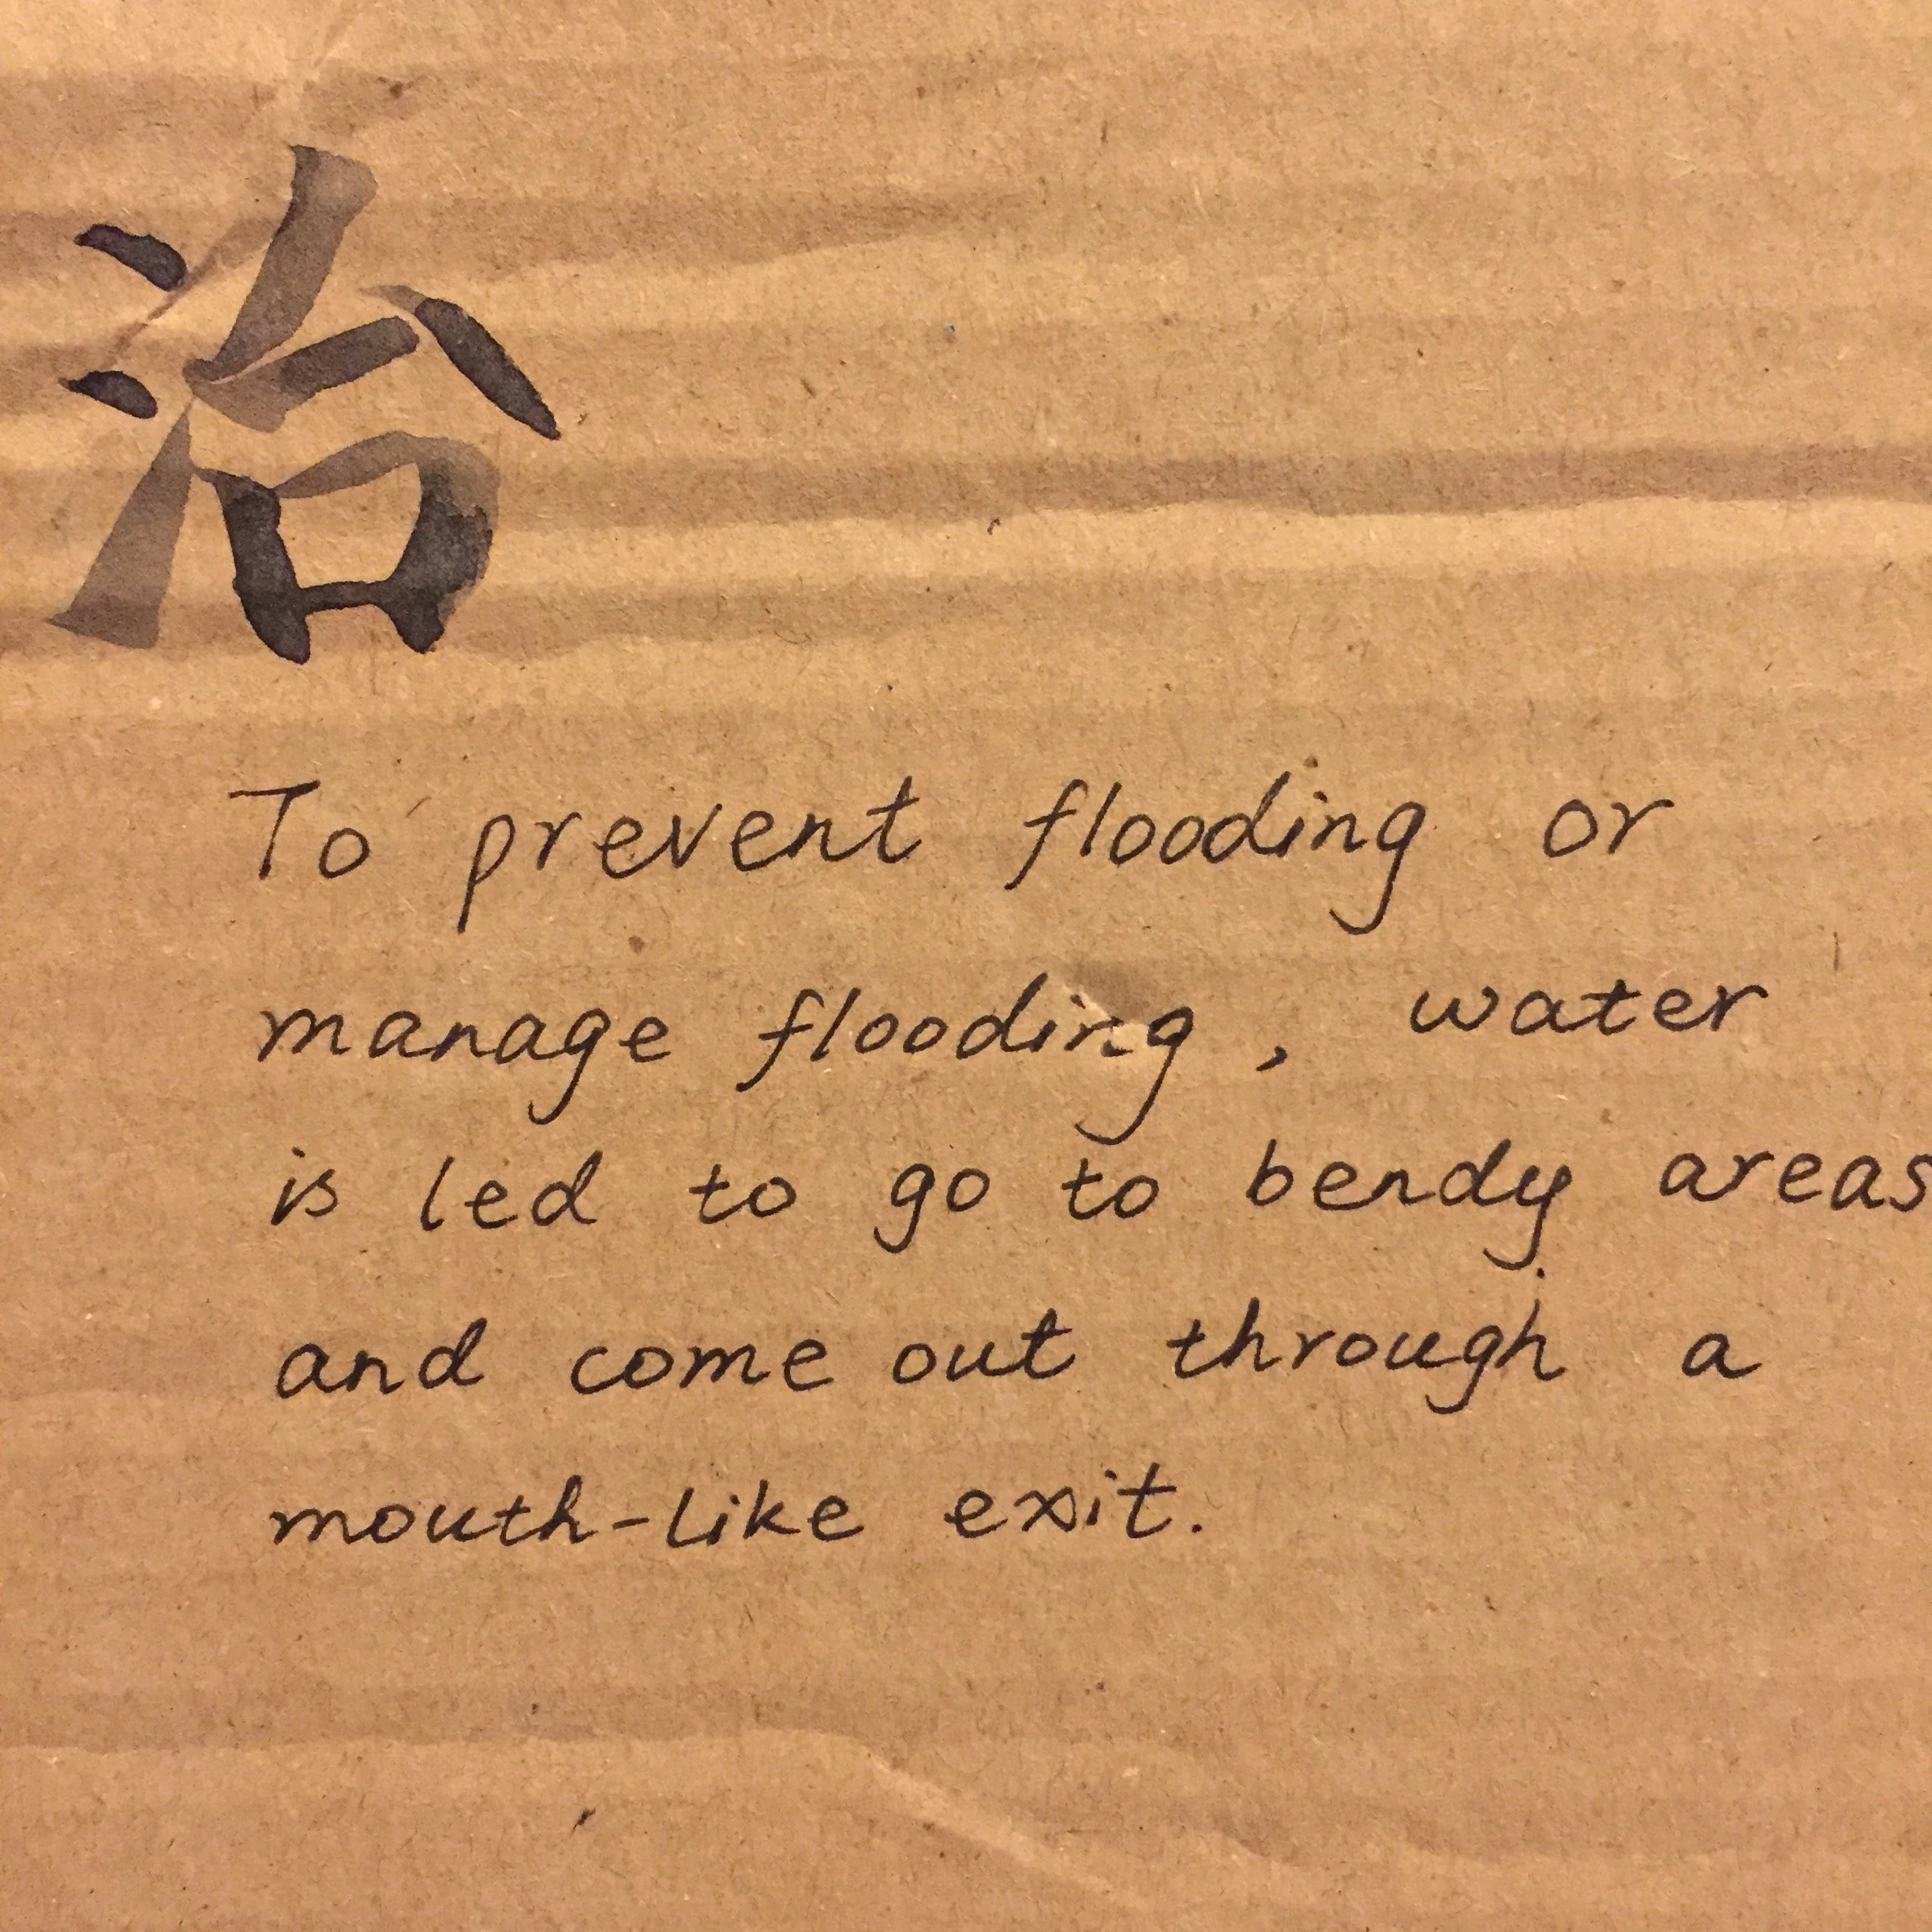 治
To prevent flooding or
manage flooding, water
is led to go to bendy areas
and come out through a
mouth-like exit.